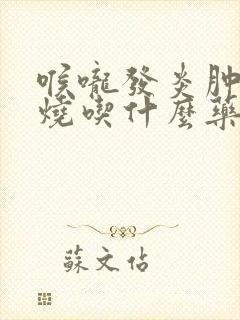 喉嚨發炎肿
燒喫什麼藥
蘇文佑